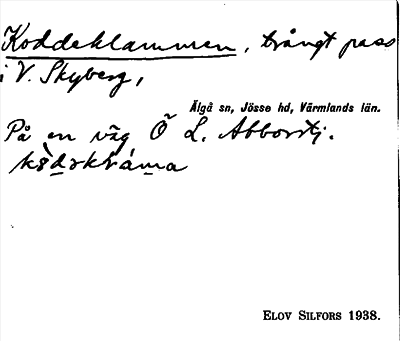 Koddeklammen, trångt pass
i V. Skyberg,
Älgå sn, Jösse hd, Värmlands län.
På en väg Ö L. Abborrtj.
Elov Silfors 1938.